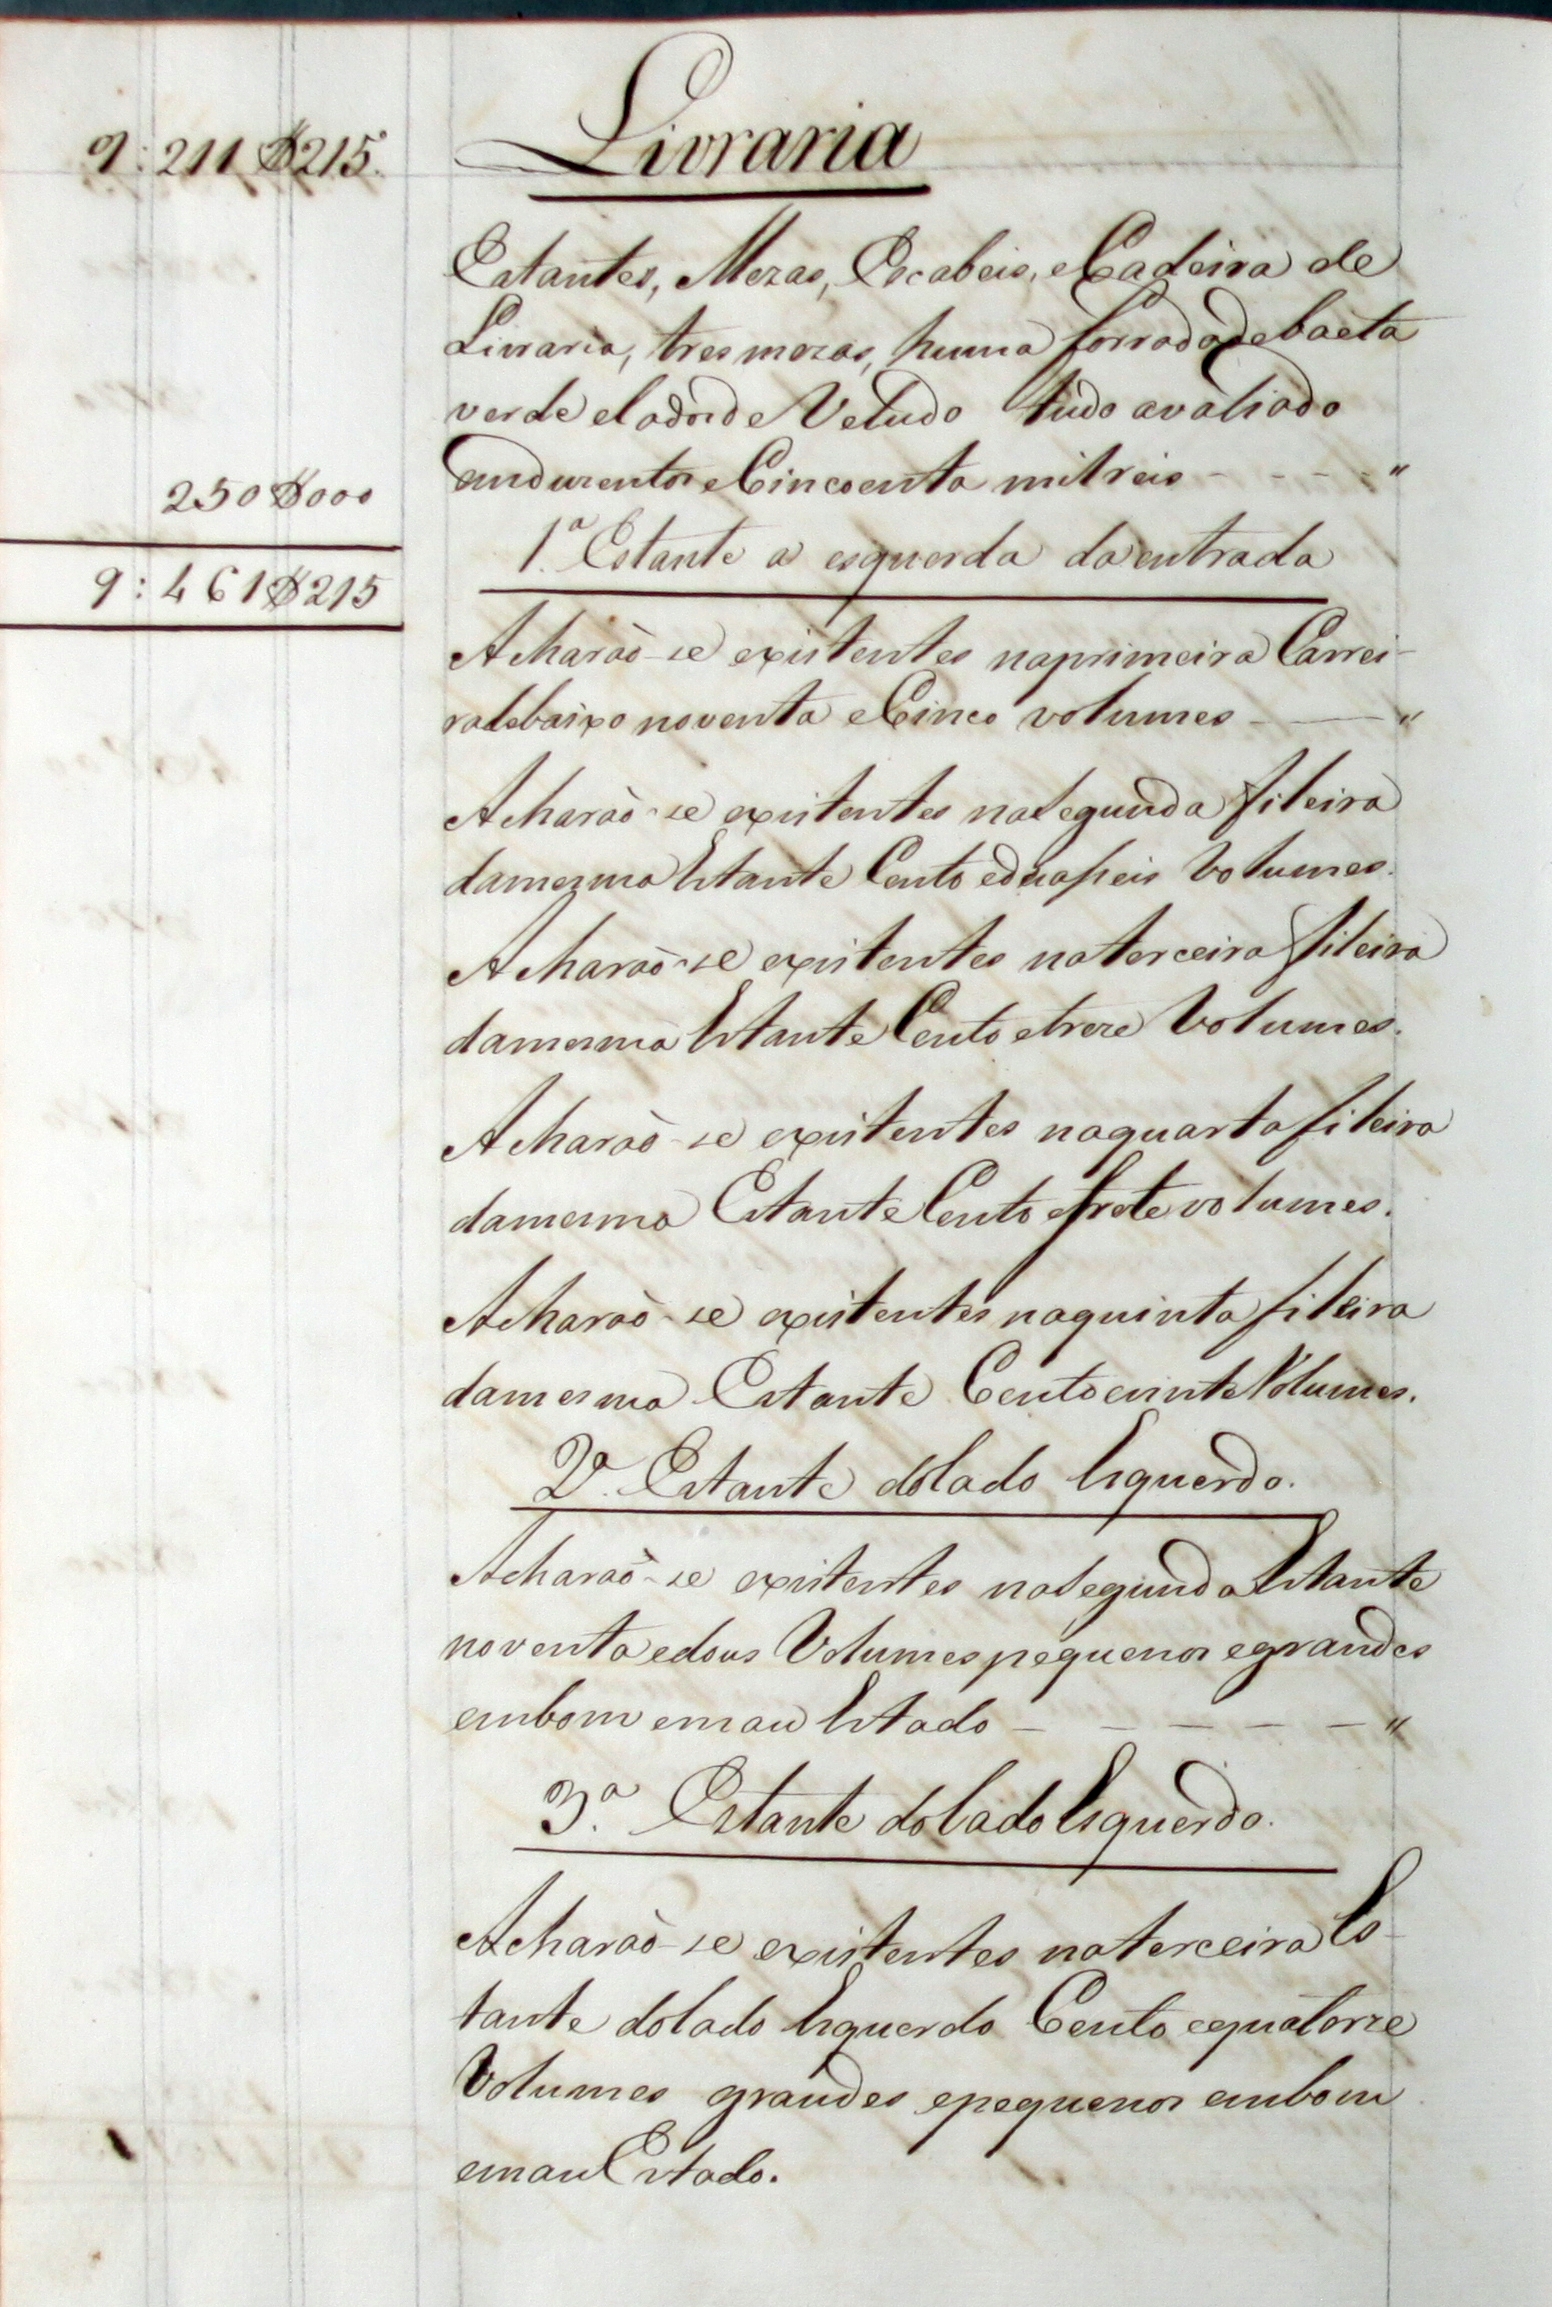 9:211$215
Livraria
Estantes, Mezas, Escabeis, e Cadeira de
Livraria, tres mezas, huma forrada de baeta
verde e de Veludo tudo avaliado
em duzentos e Cincoenta mil reis - - - - "
250$000
9:461$215
1.ª Estante a esquerda da entrada
Acharaõ-se existentes na primeira Carrei-
ra debaixo noventa e Cinco volumes - — "
Acharaõ-se existentes na Segunda fileira
da mesma Estante Cento e dezaseis Volumes.
Acharaõ-se existentes na terceira fileira
da mesma Estante Cento e treze Volumes.
Acharaõ-se existentes na quarta fileira
da mesma Estante Cento e volumes.
Acharaõ-se existentes na quinta fileira
da mesma Estante Cento e vinte Volumes.
2.ª Estante do lado Esquerdo.
Acharaõ-se existentes na Segunda Estante
noventa e dous Volumes pequenos e grandes
em bom e mau Estado - - - - - "
3.ª Estante do lado Esquerdo.
Acharaõ-se existentes na terceira Es-
tante do lado Esquerdo Cento e quatorze
Volumes grandes e pequenos em bom
e mau Estado.